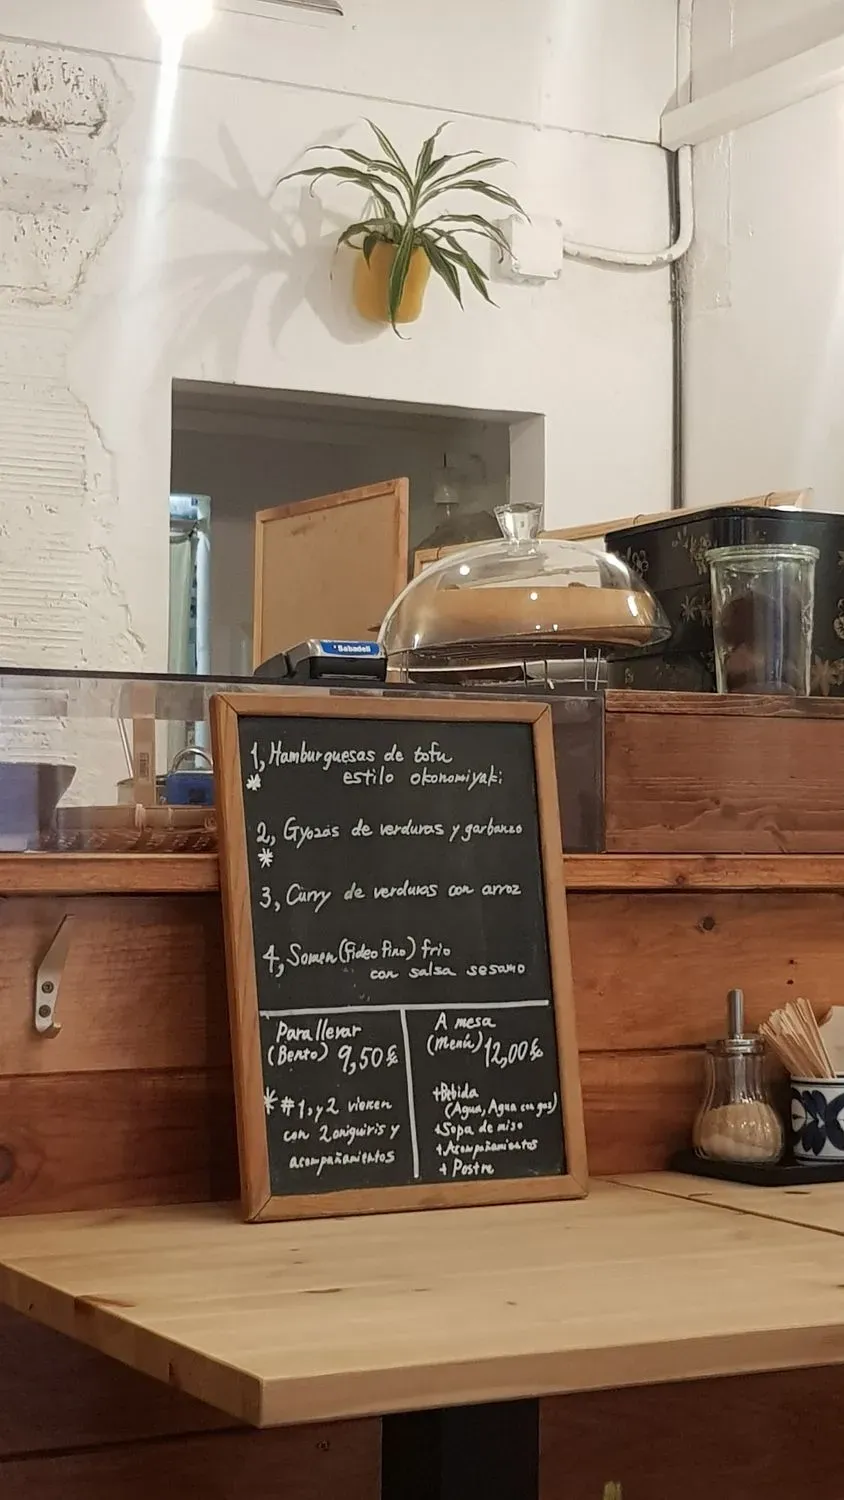 Sabadell
1, Hamburguesas de tofu
* estilo okonomiyaki
2, Gyozas de verduras y garbanzo
*
3, Curry de verduras con arroz
4, Somen (fideo fino) frio
con salsa sesamo
Para llevar
(Bento) 9,50€
* #1, y 2 vienen
con 2 oniguiris y
acompañamientos
A mesa
(Menú) 12,00€
+Bebida
(Agua, Agua con gas)
+Sopa de miso
+Acompañamientos
+ Postre